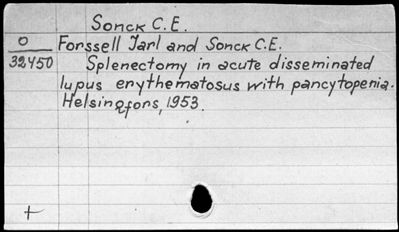 Sonck C.E.
O Forssell Jarl and Sonck C.E.
32450 Splenectomy in acute disseminated
lupus erythematosus with pancytopenia.
Helsingfors, 1953.
+